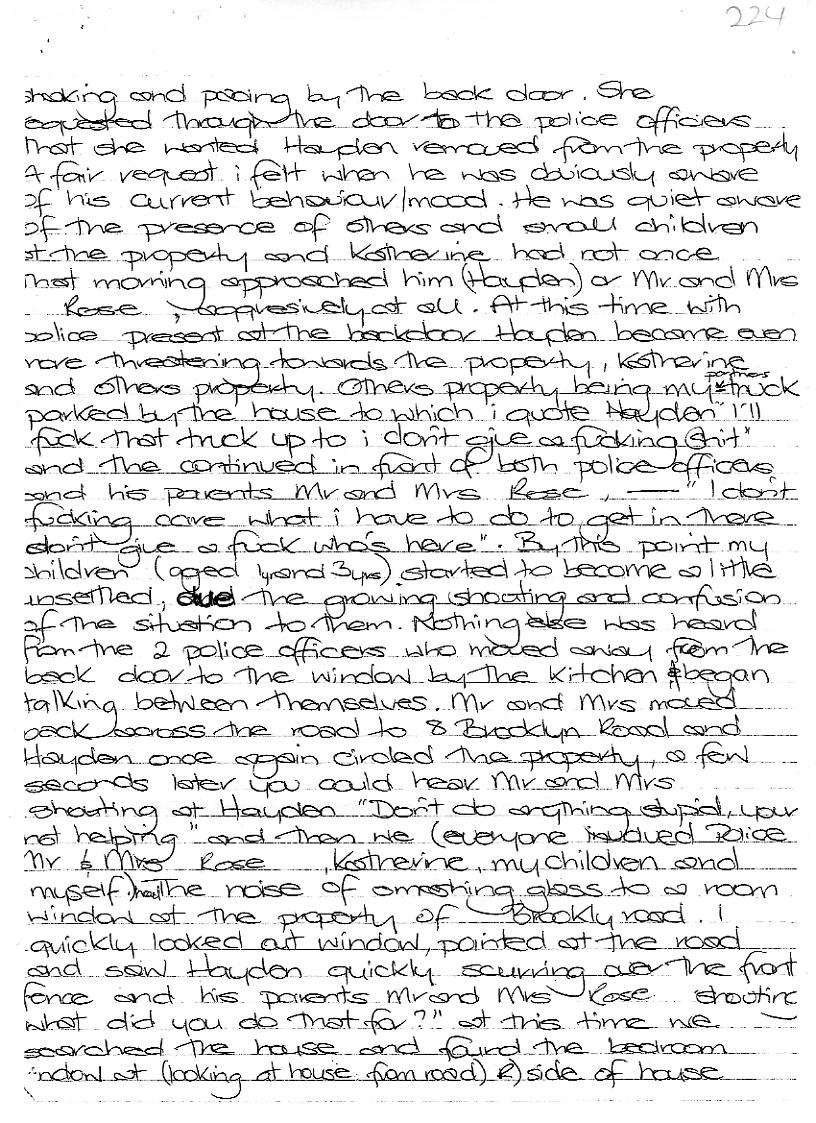 224
shaking and pacing by the back door. She
equested through the door to the police officiers
that she wanted Hayden removed from the property
A fair request i felt when he was obviously aware
of his current behaviour/mood. He was quiet aware
of the presence of others and small children
at the property and Katherine had not once
that morning approached him (Hayden) or Mr and Mrs
Rose , aggresively at all. At this time with
police present at the backdoor Hayden became even
more threatening towards the property, Katherine
and others property. Others property being my partners truck
parked by the house to which i quote Hayden "I'll
fuck that truck up to i don't give a fucking shit"
and the continued in front of both police officers
and his parents Mr and Mrs Rose , — "I don't
fucking care what i have to do to get in there
don't give a fuck who's here". By this point my
children (aged 1yr and 3yrs) started to become a little
unsettled, due the growing shouting and confusion
of the situation to them. Nothing else was heard
from the 2 police officers who moved away from the
back door to the window by the kitchen & began
talking between themselves. Mr and Mrs moved
back across the road to 8 Brooklyn Road and
Hayden once again circled the property, a few
seconds later you could hear Mr and Mrs
shouting at Hayden "Don't do anything stupid, your
not helping" and then we (everyone involved Police
Mr & Mrs Rose , Katherine, my children and
myself) heard the noise of smashing glass to a room
window at the property of Brookly road. I
quickly looked out window, pointed at the road
and saw Hayden quickly scurring over the front
fence and his parents Mr and Mrs Rose shouting
what did you do that for?" at this time we
searched the house and found the bedroom
indow at (looking at house from road) R) side of house